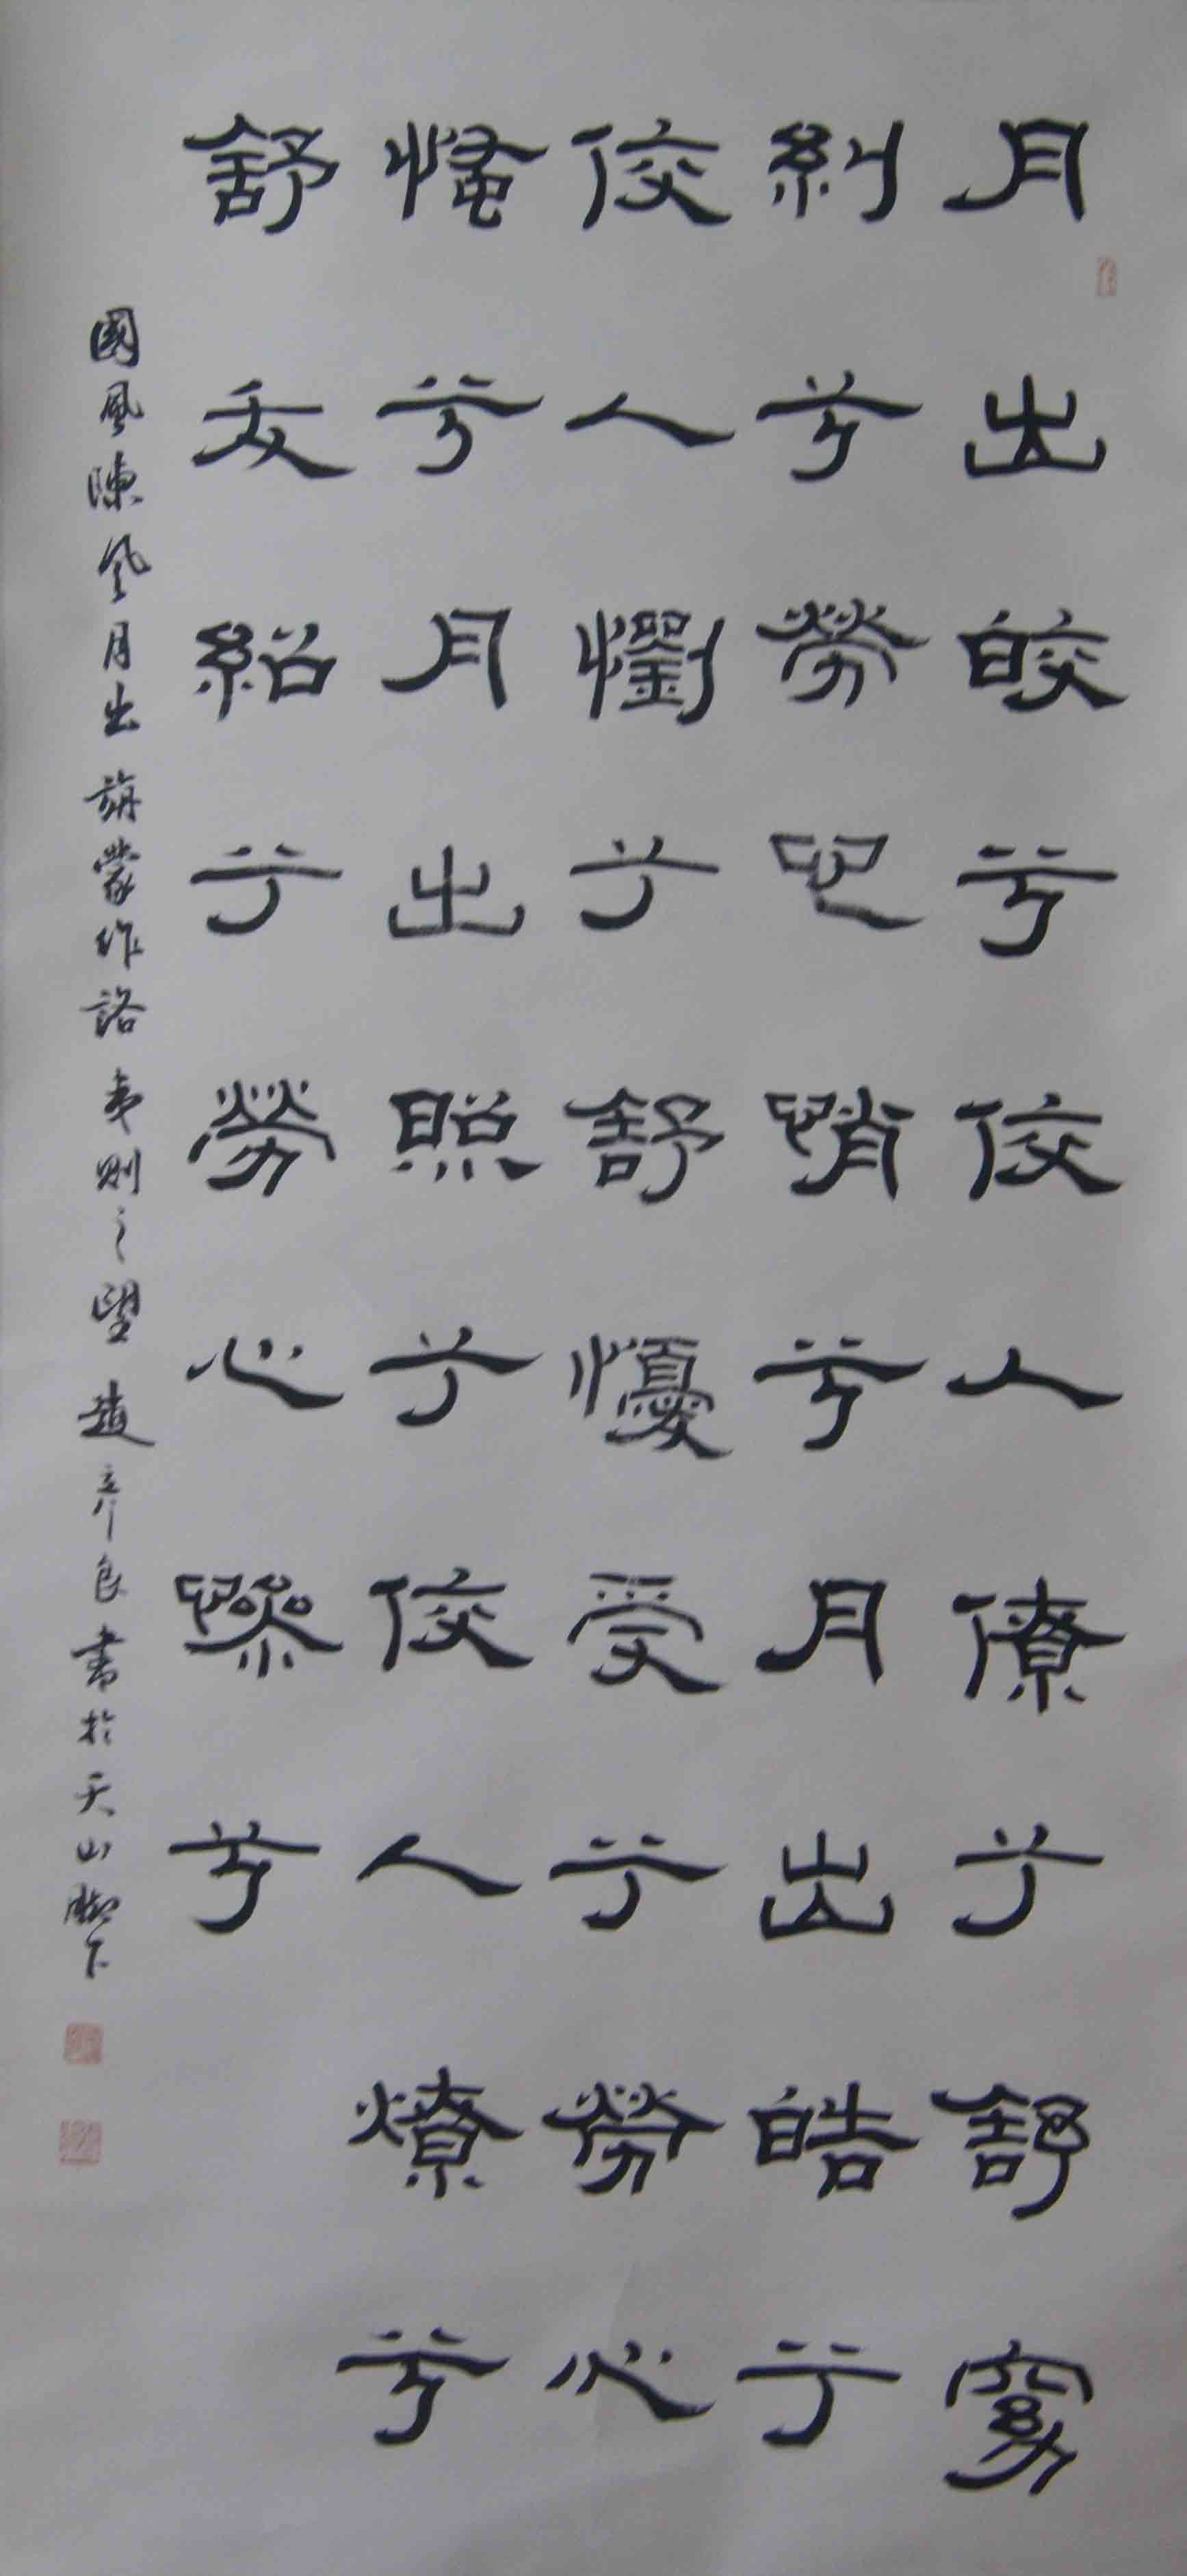 月出皎兮佼人僚兮舒窈
糾兮勞心悄兮月出皓兮
佼人懰兮舒懮受兮勞心
慅兮月出照兮佼人燎兮
舒夭紹兮勞心慘兮
國風陳風月出 旃蒙作詻夷則之望 趙彥良書於天山腳下